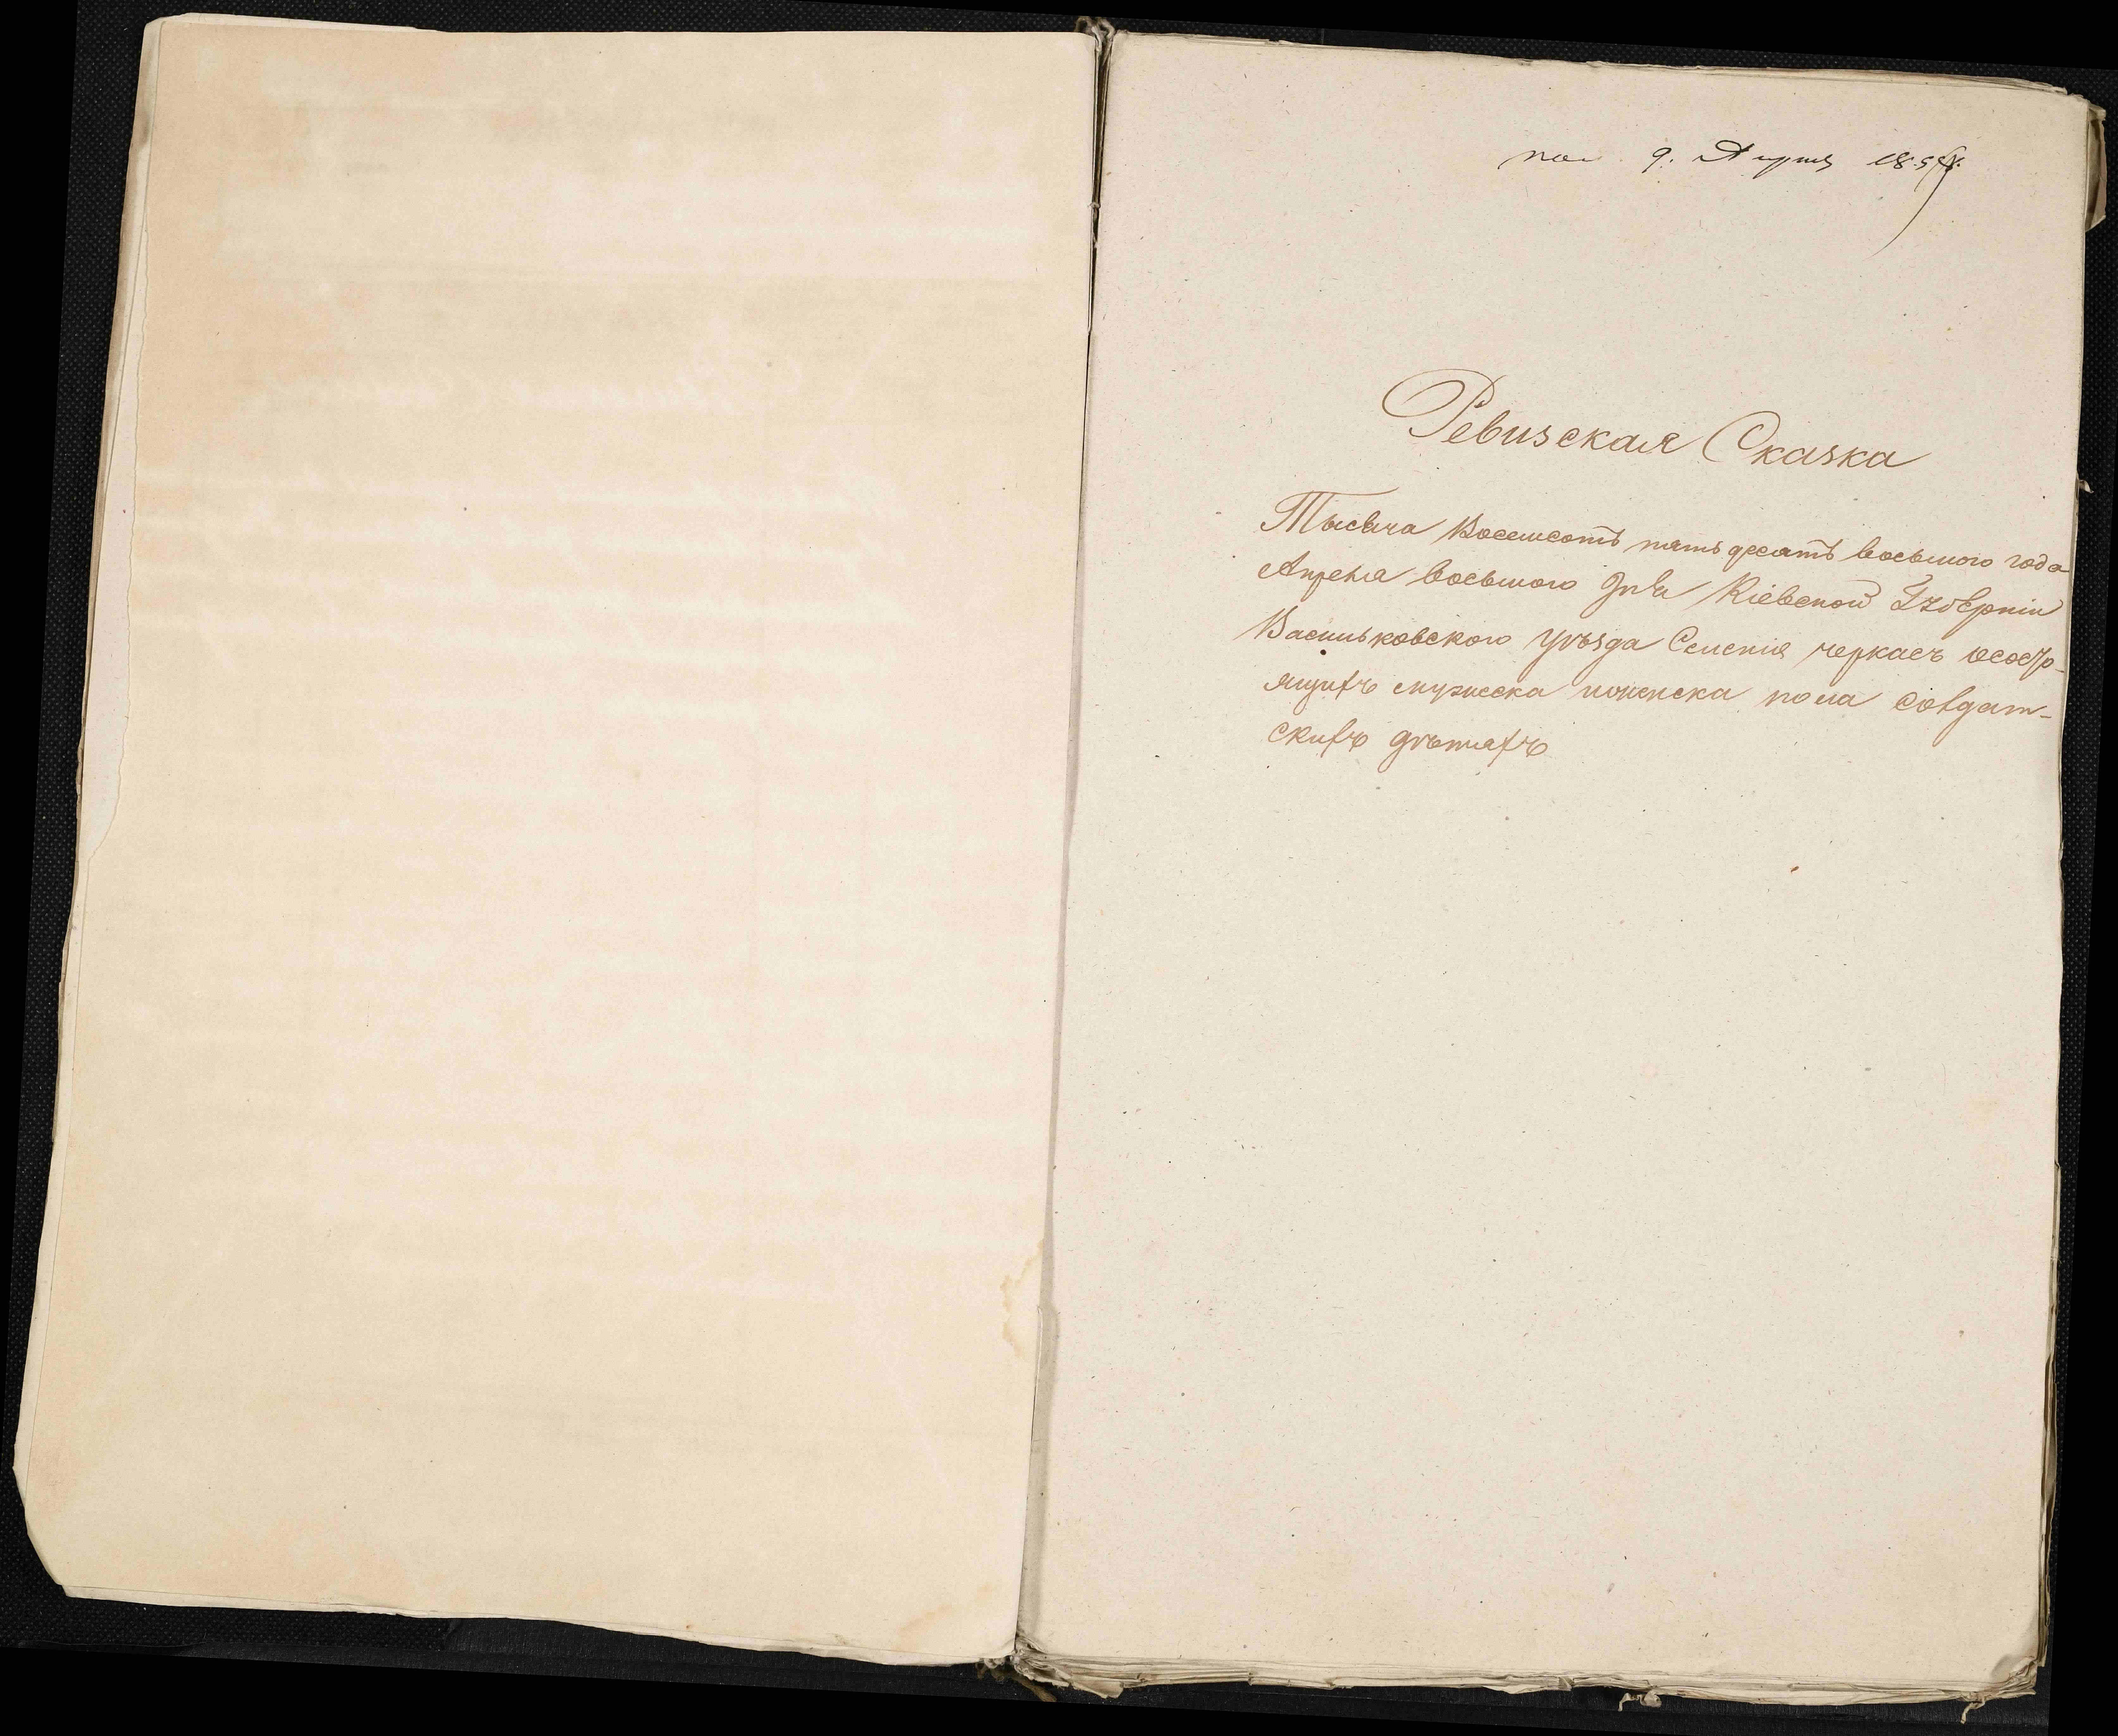 пол. 9. Апреля 1858 г.
Ревизская Сказка
Тысяча Восемсотъ пятьдесятъ восьмого года
Апреля восьмого дня Кіевской Губерніи
Васильковского уѣзда Селенія черкасъ осостро-
ящихъ мужеска иженска пола Солдат-
скихъ дѣтяхъ